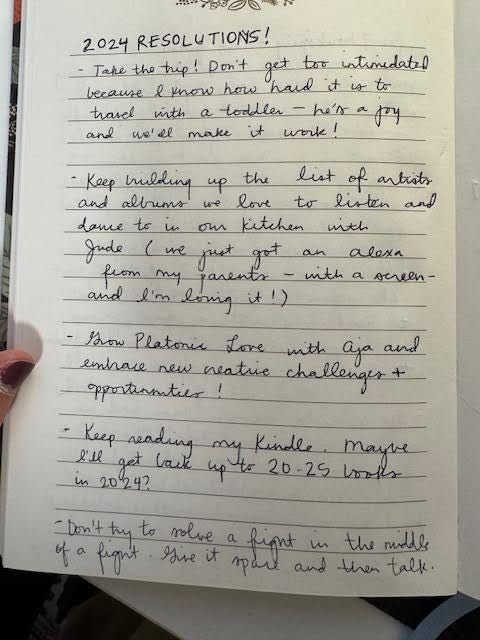 2024 RESOLUTIONS!
- Take the trip! Don't get too intimidated
because I know how hard it is to
travel with a toddler – he's a joy
and we'll make it work!
- Keep building up the list of artists
and albums we love to listen and
dance to in our kitchen with
Jude (we just got an alexa
from my parents – with a screen –
and I'm loving it!)
- Grow Platonic Love with Aja and
embrace new creative challenges +
opportunities!
- Keep reading my Kindle. Maybe
I'll get back up to 20-25 books
in 2024?
- Don't try to solve a fight in the middle
of a fight. Give it space and then talk.